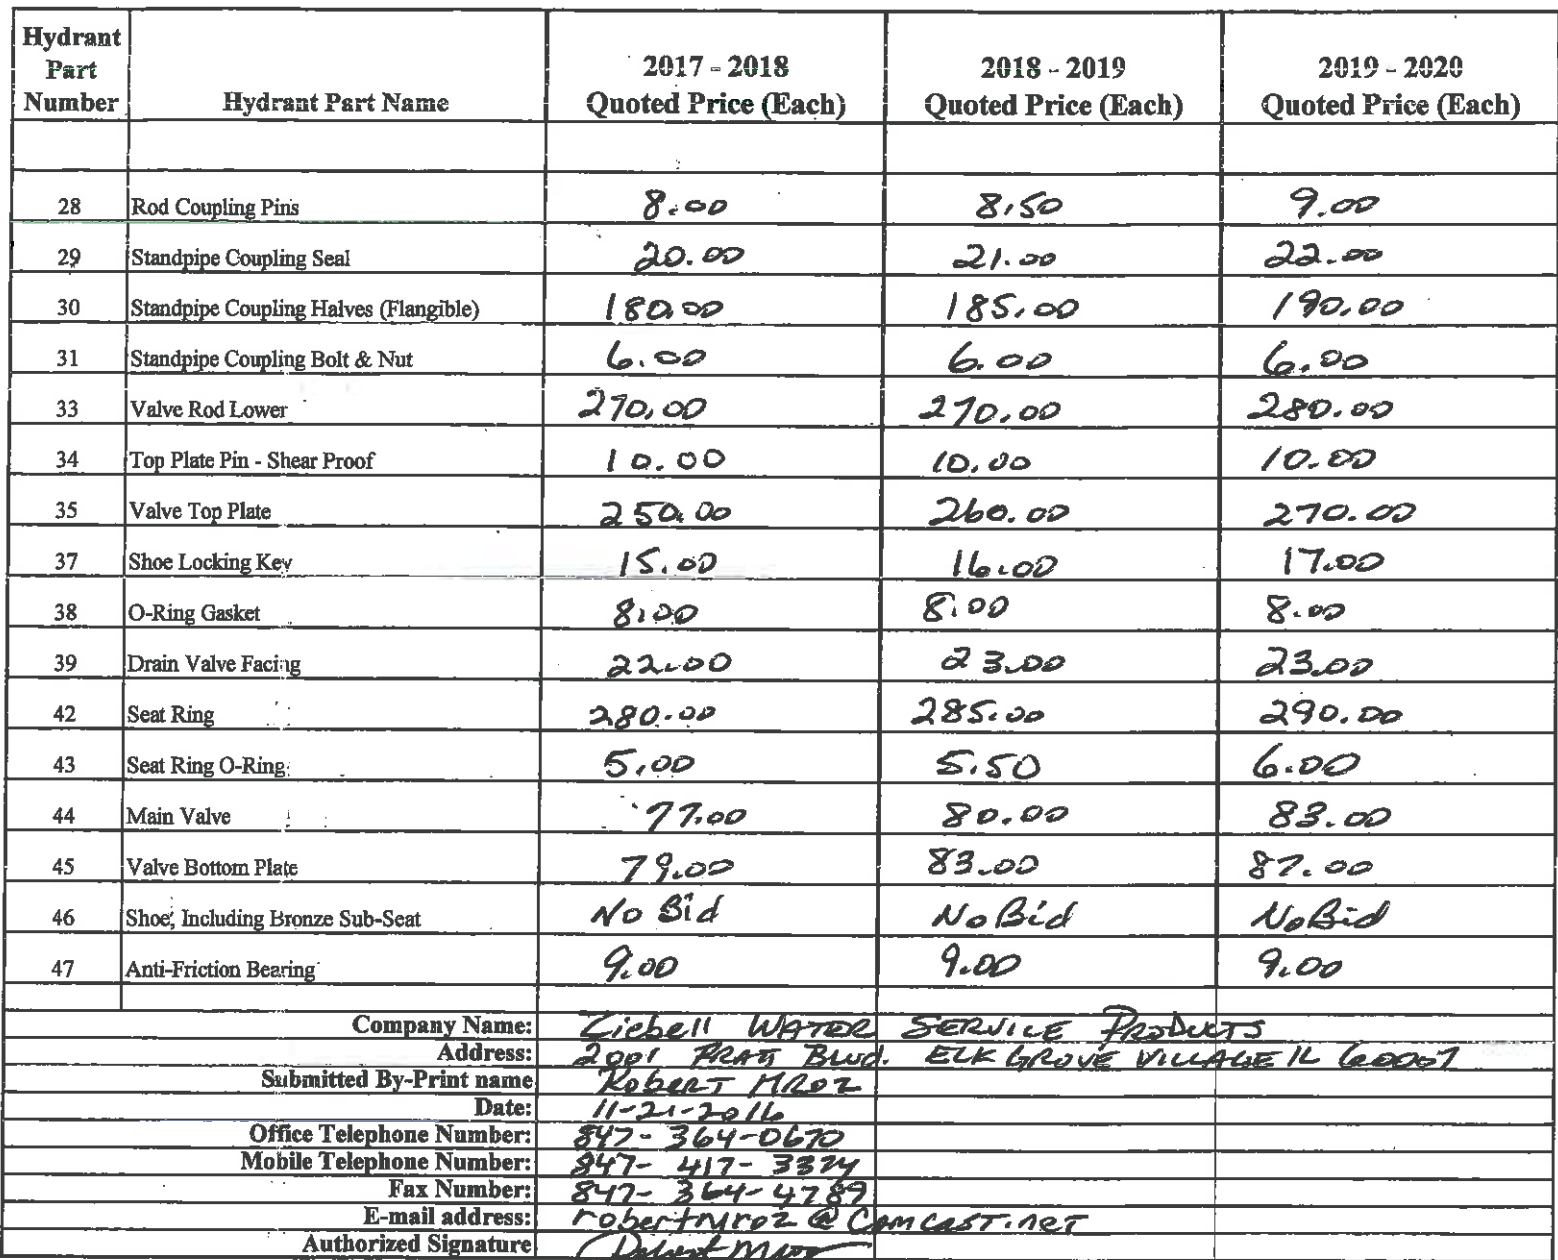 Hydrant Part Number | Hydrant Part Name | 2017 - 2018 Quoted Price (Each) | 2018 - 2019 Quoted Price (Each) | 2019 - 2020 Quoted Price (Each)
28 | Rod Coupling Pins | 8.00 | 8.50 | 9.00
29 | Standpipe Coupling Seal | 20.00 | 21.00 | 22.00
30 | Standpipe Coupling Halves (Flangible) | 180.00 | 185.00 | 190.00
31 | Standpipe Coupling Bolt & Nut | 6.00 | 6.00 | 6.00
33 | Valve Rod Lower | 270.00 | 270.00 | 280.00
34 | Top Plate Pin - Shear Proof | 10.00 | 10.00 | 10.00
35 | Valve Top Plate | 250.00 | 260.00 | 270.00
37 | Shoe Locking Key | 15.00 | 16.00 | 17.00
38 | O-Ring Gasket | 8.00 | 8.00 | 8.00
39 | Drain Valve Facing | 22.00 | 23.00 | 23.00
42 | Seat Ring | 280.00 | 285.00 | 290.00
43 | Seat Ring O-Ring | 5.00 | 5.50 | 6.00
44 | Main Valve | 77.00 | 80.00 | 83.00
45 | Valve Bottom Plate | 79.00 | 83.00 | 87.00
46 | Shoe, Including Bronze Sub-Seat | No Bid | No Bid | No Bid
47 | Anti-Friction Bearing | 9.00 | 9.00 | 9.00
Company Name: Ziebell WATER SERVICE PRODUCTS
Address: 2001 PRATT BLVD. ELK GROVE VILLAGE IL 60007
Submitted By-Print name Robert MROZ
Date: 11-21-2016
Office Telephone Number: 847-364-0670
Mobile Telephone Number: 847-417-3374
Fax Number: 847-364-4789
E-mail address: robertmroz@Comcast.net
Authorized Signature Robert Mroz